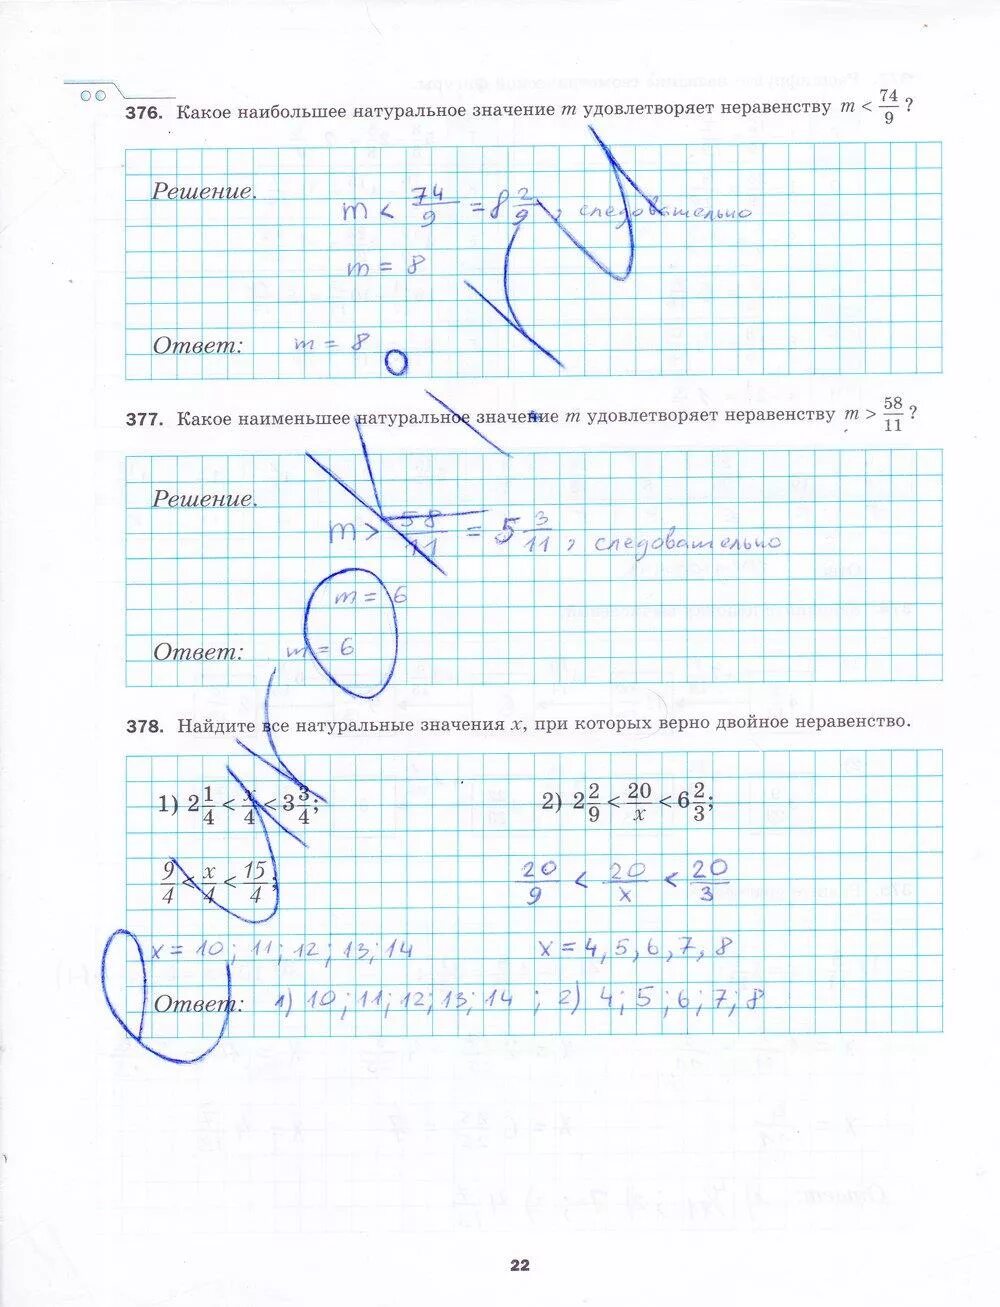 376. Какое наибольшее натуральное значение m удовлетворяет неравенству m < 74/9 ?
Решение.
m < 74/9 = 8 2/9, следовательно
m = 8
Ответ: m = 8
377. Какое наименьшее натуральное значение m удовлетворяет неравенству m > 58/11 ?
Решение.
m > 58/11 = 5 3/11, следовательно
m = 6
Ответ: m = 6
378. Найдите все натуральные значения x, при которых верно двойное неравенство.
1) 2 1/4 < x/4 < 3 3/4; 2) 2 2/9 < 20/x < 6 2/3;
9/4 < x/4 < 15/4; 20/9 < 20/x < 20/3
x = 10; 11; 12; 13; 14 x = 4, 5, 6, 7, 8
Ответ: 1) 10; 11; 12; 13; 14 ; 2) 4; 5; 6; 7; 8
22